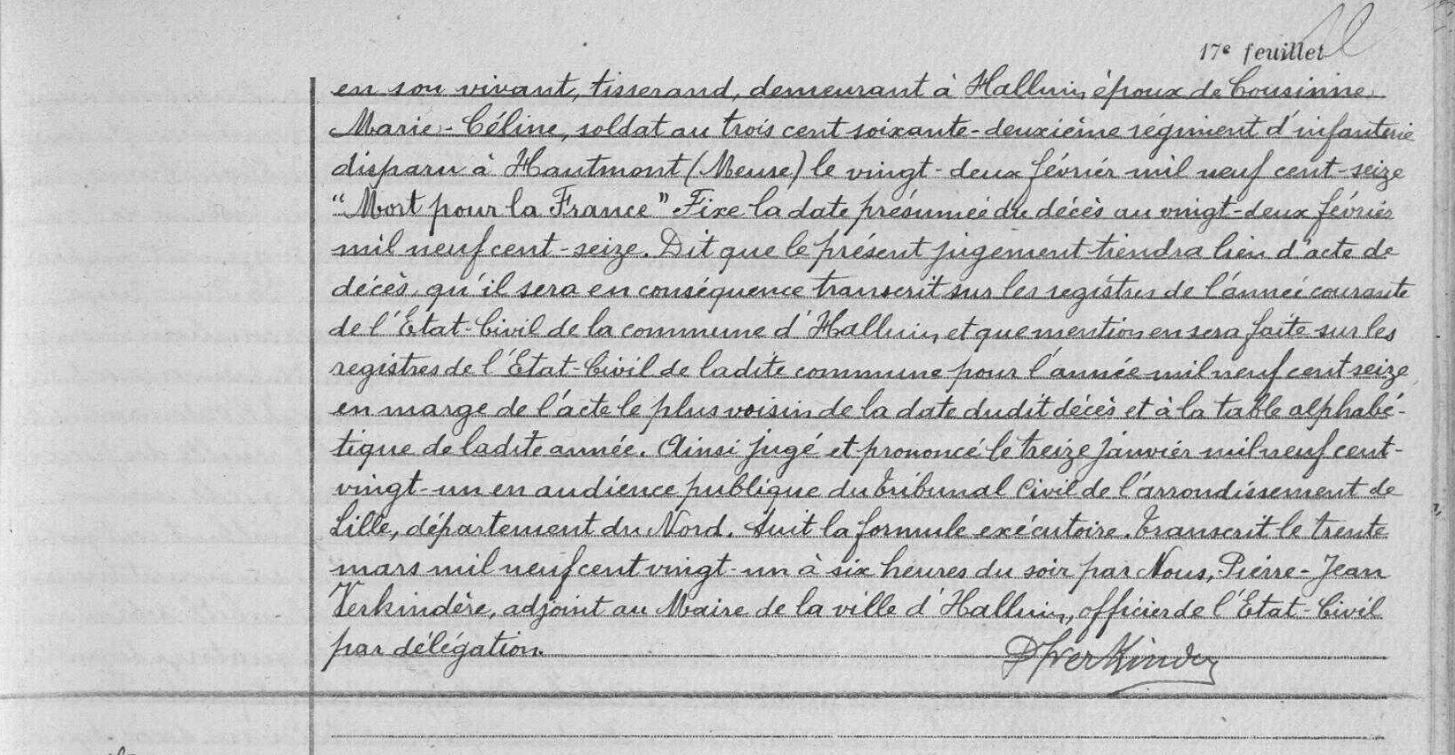 17e feuillet
en son vivant, tisserand, demeurant à Halluin, époux de Cousinne
Marie-Céline, soldat au trois cent soixante-deuxième régiment d'infanterie
disparu à Hautmont (Meuse) le vingt-deux février mil neuf cent-seize
"Mort pour la France" Fixe la date présumée du décès au vingt-deux février
mil neuf cent-seize. Dit que le présent jugement tiendra lieu d'acte de
décès, qu'il sera en conséquence transcrit sur les registres de l'année courante
de l'Etat-Civil de la commune d'Halluin, et que mention en sera faite sur les
registres de l'Etat-Civil de ladite commune pour l'année mil neuf cent seize
en marge de l'acte le plus voisin de la date dudit décès et à la table alphabé-
tique de ladite année. Ainsi jugé et prononcé le treize janvier mil neuf cent-
vingt-un en audience publique du tribunal Civil de l'arrondissement de
Lille, département du Nord. Suit la formule exécutoire. Transcrit le trente
mars mil neuf cent vingt-un à six heures du soir par Nous, Pierre-Jean
Verkindère, adjoint au Maire de la ville d'Halluin, officier de l'Etat-Civil
par délégation.